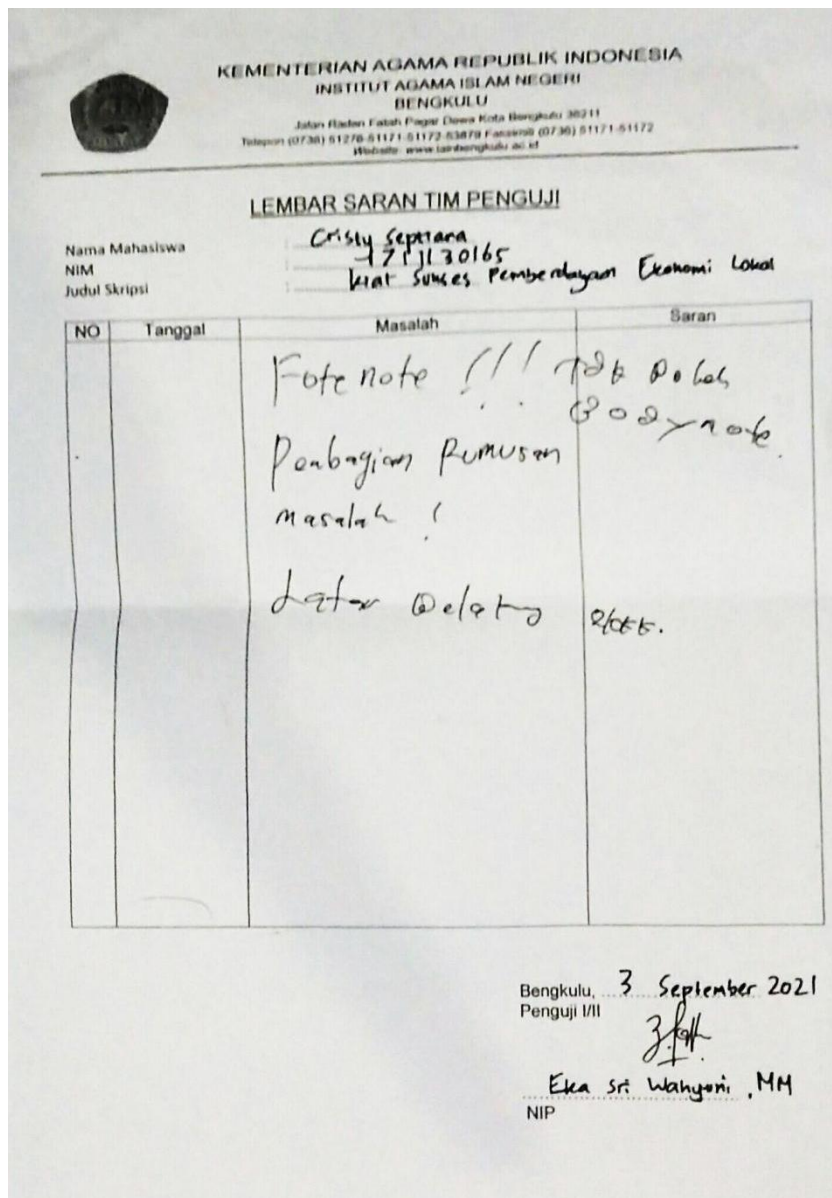 KEMENTERIAN AGAMA REPUBLIK INDONESIA
INSTITUT AGAMA ISLAM NEGERI
BENGKULU
Jalan Raden Fatah Pagar Dewa Kota Bengkulu 38211
Telepon (0736) 51276-51171-51172-53879 Faksimili (0736) 51171-51172
Website: www.iainbengkulu.ac.id
LEMBAR SARAN TIM PENGUJI
Nama Mahasiswa : Cristy Septiana
NIM : 1711130165
Judul Skripsi : kiat Sukses Pemberdayaan Ekonomi Lokal
NO Tanggal Masalah Saran
Fote note !!! Tdk Boleh
Bodynote.
Pembagian Rumusan
masalah !
Latar Belakang
Bengkulu, 3 September 2021
Penguji I/II
Eka Sri Wahyuni, MM
NIP